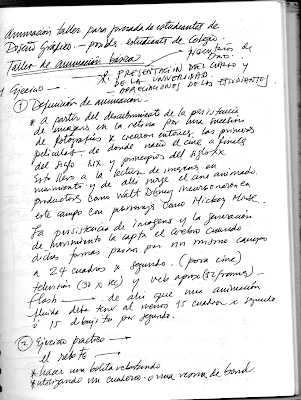 Animación taller para jornada de estudiantes de
Diseño Gráfico. - estudiantes de Colegio.
Taller de animación básica
* PRESENTACION DEL CURSO Y
DE LA UNIVERSIDAD.
DE LOS ESTUDIANTES.
Ejercicio
① Definición de animación.
* a partir del descubrimiento de la persistencia
de imagenes en la retina por una sucesión
de fotografías se crearon entonces las primeras
peliculas. de donde nació el cine a finales
del siglo XIX y principios del siglo XX.
Esto llevo a la lectura de imagenes en
movimiento y de alli surge el cine animado.
productores como Walt Disney incursionaron en
este campo con personajes como Mickey Mouse.
La persistencia de imagenes y la generación
de movimiento la capta el cerebro cuando
dichas formas pasan por un mismo campo
a 24 cuadros x segundo. (para cine)
televisión (30 x seg) y web aprox (12 frames) -
flash de alli que una animación
fluida debe tener al menos 15 cuadros x segundo
o 15 dibujos por segundo.
② Ejercicio practico -
el rebote
* hacer una bolita rebotando
* utilizando un cuaderno o una resma de bond.